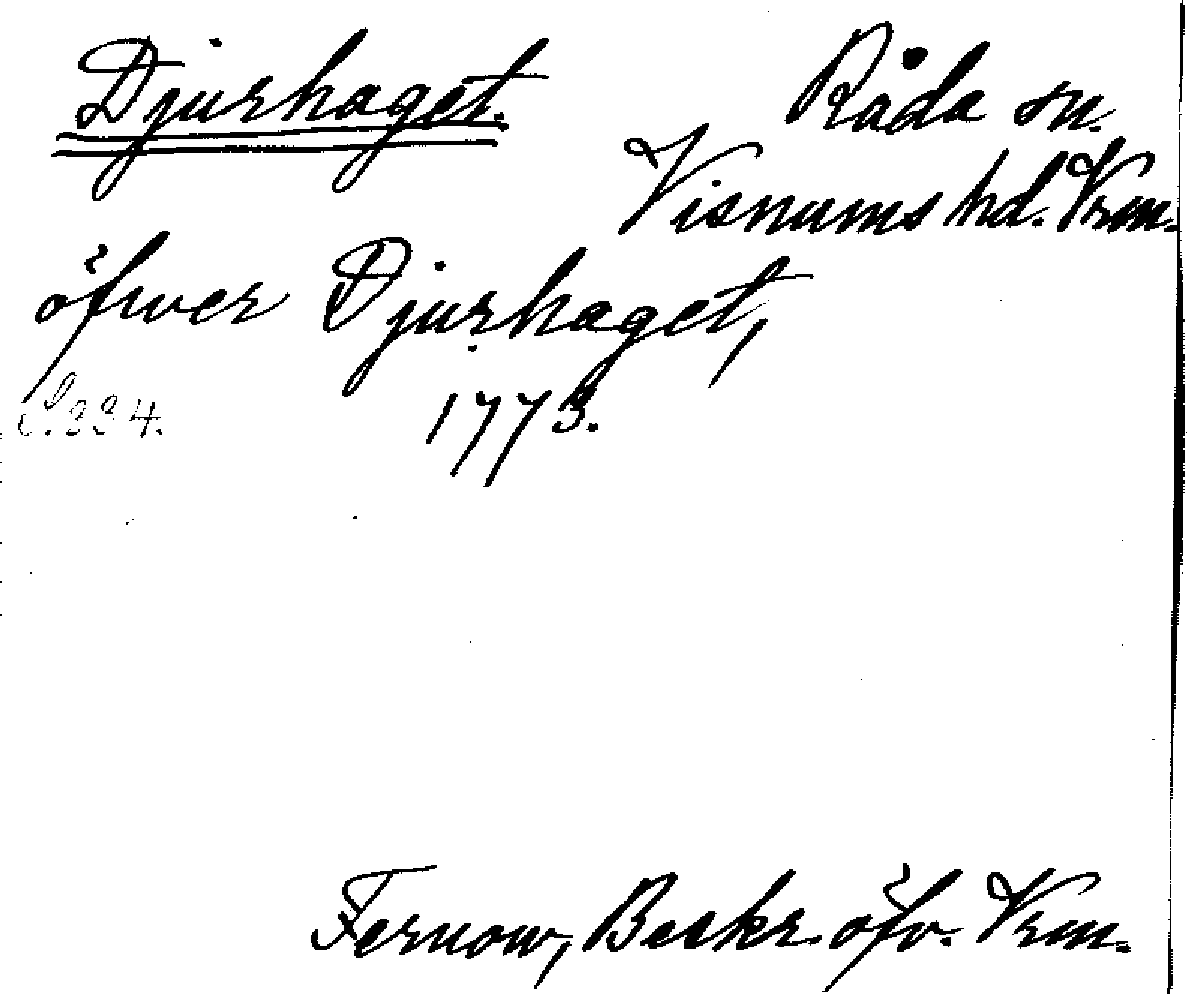 Djurhaget. Råda sn.
Visnums hd. Vrm.
öfwer Djurhaget,
S. 334. 1773.
Fernow, Beskr. öfv. Vrm.